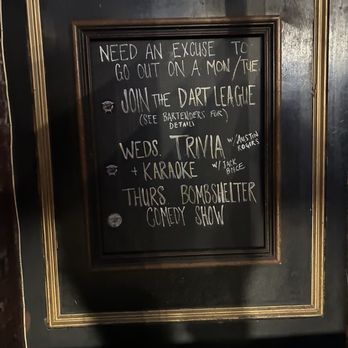 NEED AN EXCUSE TO
GO OUT ON A MON/TUE.
JOIN THE DART LEAGUE
(SEE BARTENDERS FOR)
DETAILS
WEDS. TRIVIA W/ AUSTON
ROGERS
+ KARAOKE W/ JACK
BICE
THURS. BOMBSHELTER
COMEDY SHOW